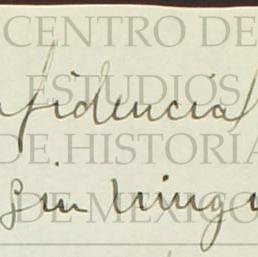 CENTRO DE
ESTUDIOS
fidencial
DE HISTORIA
sin ningu
DE MEXICO